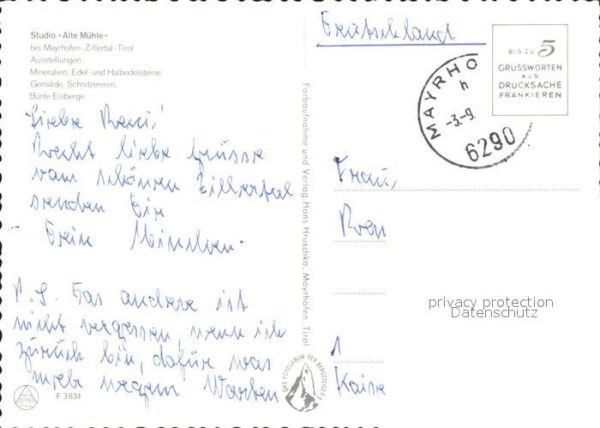 Studio »Alte Mühle«
bei Mayrhofen-Zillertal-Tirol
Ausstellungen:
Mineralien, Edel- und Halbedelsteine,
Gemälde, Schnitzereien,
Bunte Eisberge
Liebe Reni!
Recht liebe Grüsse
vom schönen Zillertal
senden Dir
Dein
P.S. Das andere ist
nicht vergessen, wenn ich
zurück bin, dafür was
mehr wegem Warten
F 3634
Farbaufnahme und Verlag Hans Hruschka, Mayrhofen, Tirol
DAS AUTOGRAMM DER BERGSTEIGER
Deutschland
BIS ZU 5
GRUSSWORTEN
ALS
DRUCKSACHE
FRANKIEREN
MAYRHO
h
-3.-9.
6290
Frau,
Ren
1
Kaise
privacy protection
Datenschutz